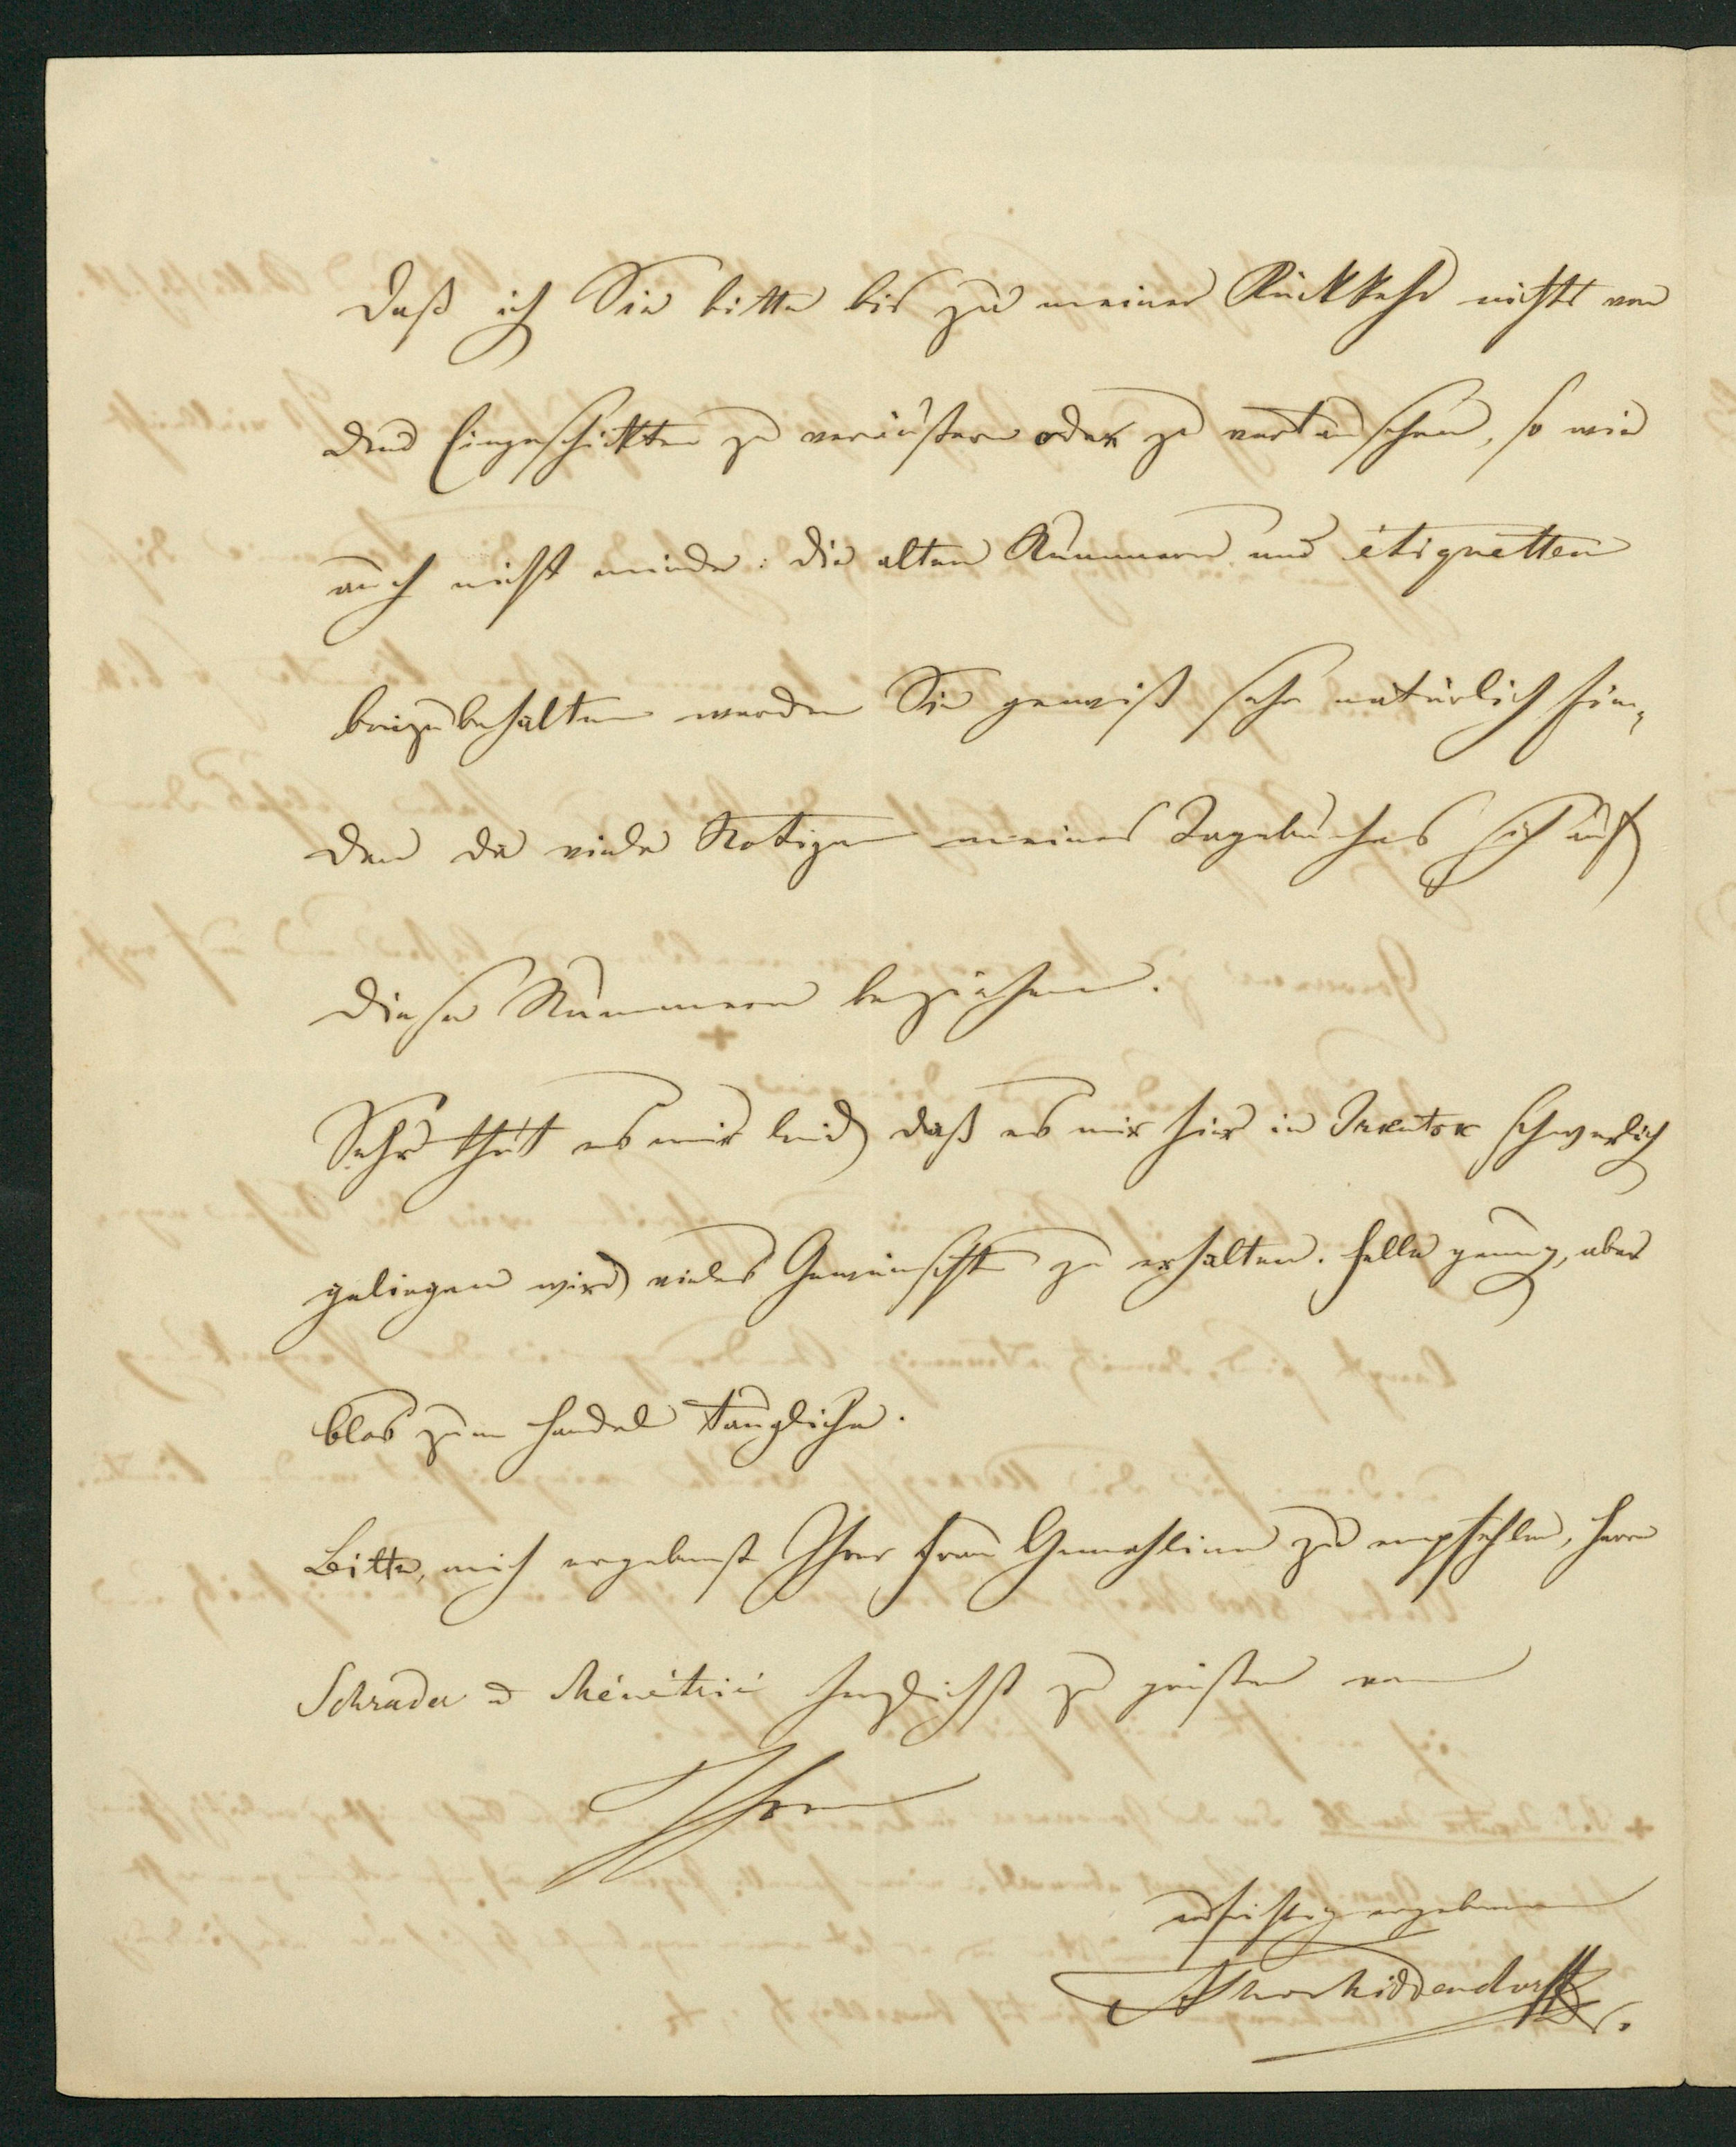 daß ich Sie bitte bis zu meiner Rückkehr nichts von
dem Eingeschickten zu veräußern oder zu vertauschen, so wie
auch nicht minder: die alten Nummern und étiquetten
beizubehalten werden Sie gewiß sehr natürlich fin-
den da viele Notizen meines Tagebuches sich auf
diese Nummern beziehen.
Sehr thut es mir leid daß es mir hier in Irkutsk schwerlich
gelingen wird vieles Gewünschte zu erhalten. Felle genug, aber
blos zum Handel taugliche.
Bitte, mich ergebenst Ihrer Frau Gemahlinn zu empfehlen, Herrn
Schrader & Ménétrié herzlichst zu grüßen von
Ihrem
aufrichtig ergebenen
A von Middendorff